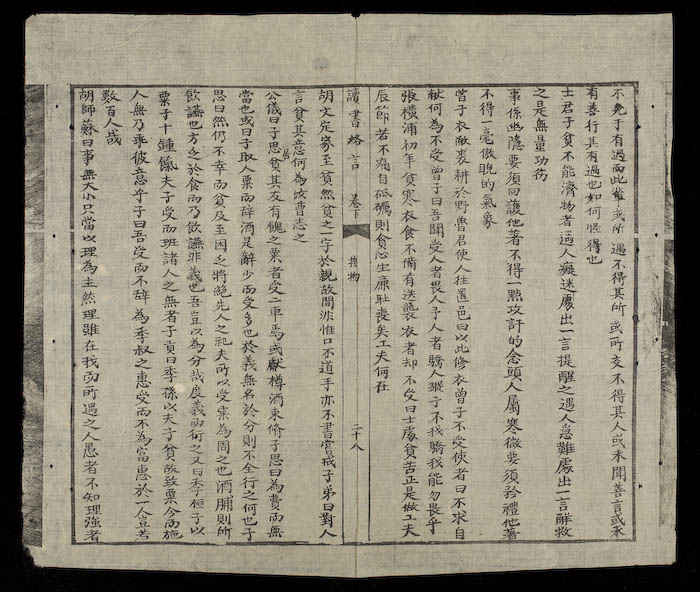 不免于有過而此輩或所遇不得其所或所交不得其人或未聞善言或未
有善行其有過也如何恠得也
士君子貧不能濟物者遇人癡迷處出一言提醒之遇人急難處出一言解救
之是無量功德
事係幽隱要須回護他著不得一點攻訐的念頭人屬寒微要須矜禮他著
不得一毫傲睨的氣象
曾子衣敝裘耕於野魯君使人往置邑曰以此修衣曾子不受使者曰不求自
献何為不受曾子曰吾聞受人者畏人予人者驕人縱子不我驕我能勿畏乎
張橫浦初年貧寒衣食不備有送裘衣者却不受曰士處貧苦正是做工夫
辰節若不痛自砥礪則貪心生廉恥喪矣工夫何在
讀書略言 卷下 接物 二十八
胡文定家至貧然貧之一字於親故間非惟口不道手亦不書嘗戒子弟曰對人
言貧其意何為汝曹志之
公儀曰子思居貧其友有餽之粟者受二車焉或獻樽酒束脩子思曰為費而無
當也或曰子取人粟而辭酒是辭少而受多也於義無名於分則不全行之何也子
思曰然伋不幸而貧及至困乏將絕先人之祀夫所以受粟為周之也酒脯則所
飲讌也方乏於食而乃飲讌非義也吾豈以為分哉度義而行之又曰季桓子以
粟千鍾餼夫子受而班諸人之無者子貢曰季孫以夫子貧故致粟今而施
人無乃乖彼意乎子曰吾受而不辞為季叔之惠受而不為富惠於一人豈若
數百人哉
胡師蘇曰事無大小只當以理為主然理雖在我而所遇之人愚者不知理強者